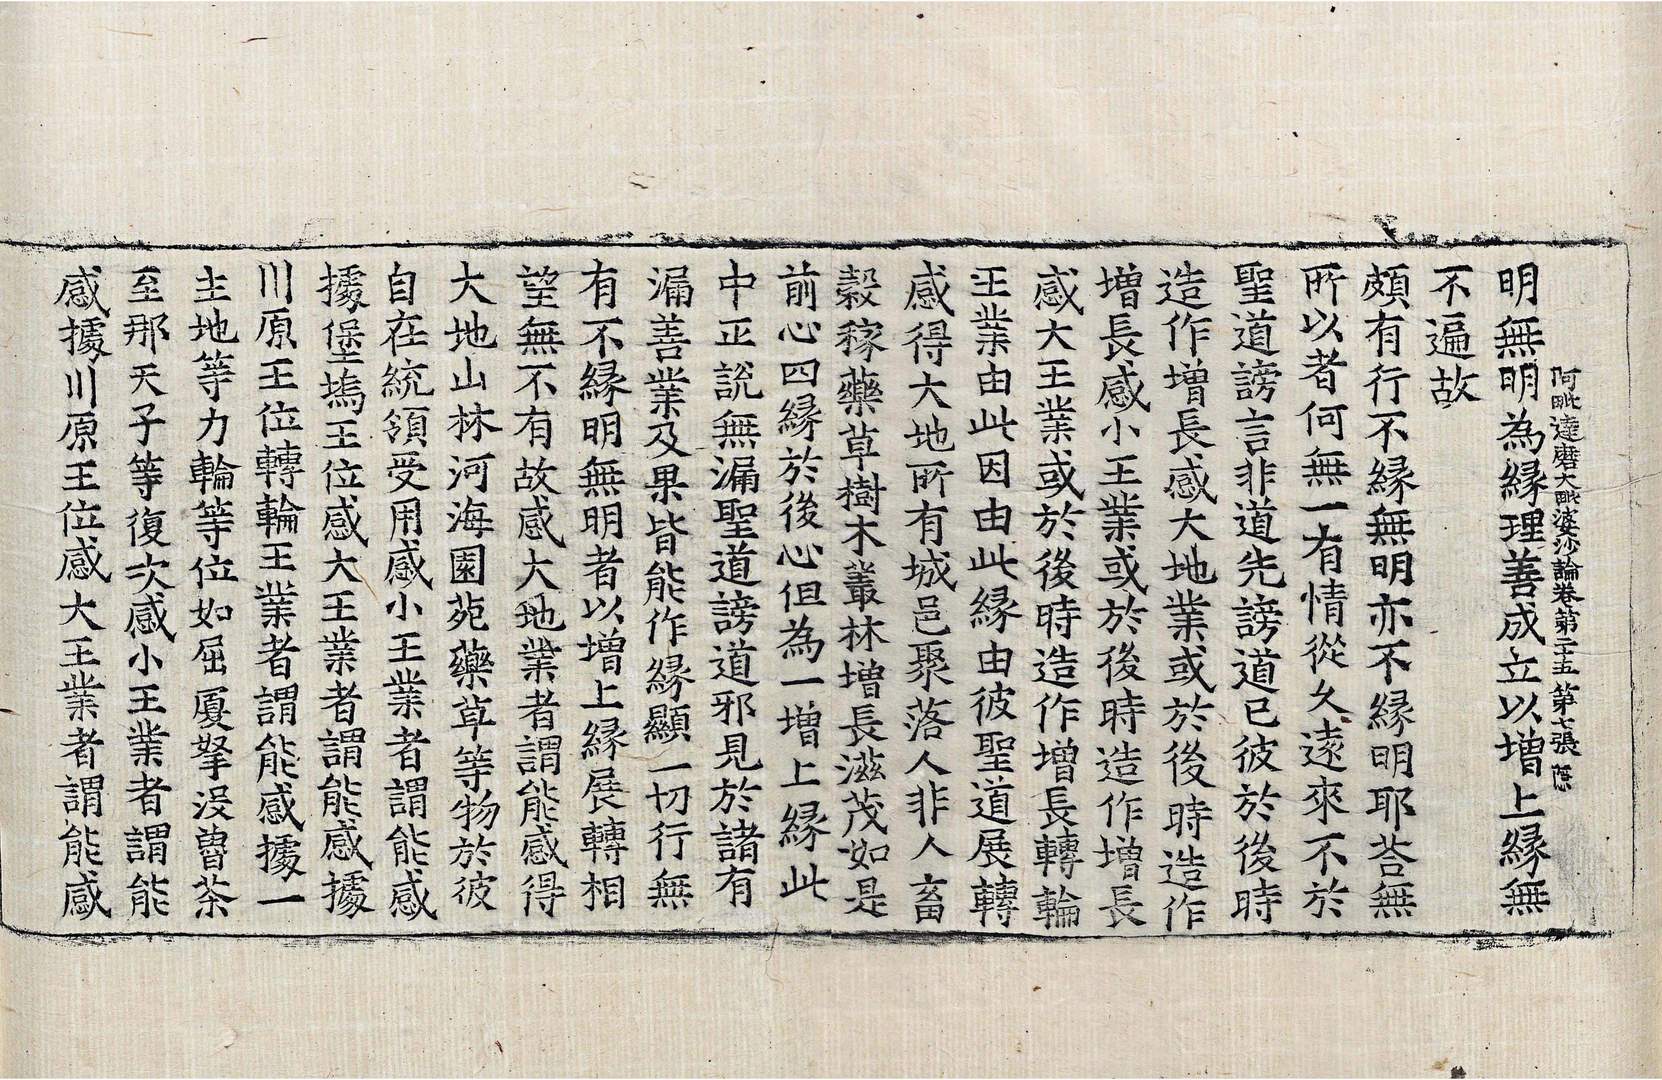 阿毗達磨大毗婆沙論卷第二十五 第七張 隱
明無明為緣理善成立以增上緣無
不遍故
頗有行不緣無明亦不緣明耶荅無
所以者何無一有情從久遠來不於
聖道謗言非道先謗道已彼於後時
造作增長感大地業或於後時造作
增長感小王業或於後時造作增長
感大王業或於後時造作增長轉輪
王業由此因由此緣由彼聖道展轉
感得大地所有城邑聚落人非人畜
穀稼藥草樹木叢林增長滋茂如是
前心四緣於後心但為一增上緣此
中正說無漏聖道謗道邪見於諸有
漏善業及果皆能作緣顯一切行無
有不緣明無明者以增上緣展轉相
望無不有故感大地業者謂能感得
大地山林河海園苑藥草等物於彼
自在統領受用感小王業者謂能感
據堡塢王位感大王業者謂能感據
川原王位轉輪王業者謂能感據一
主地等力輪等位如屈厦拏沒曾荼
至那天子等復次感小王業者謂能
感據川原王位感大王業者謂能感